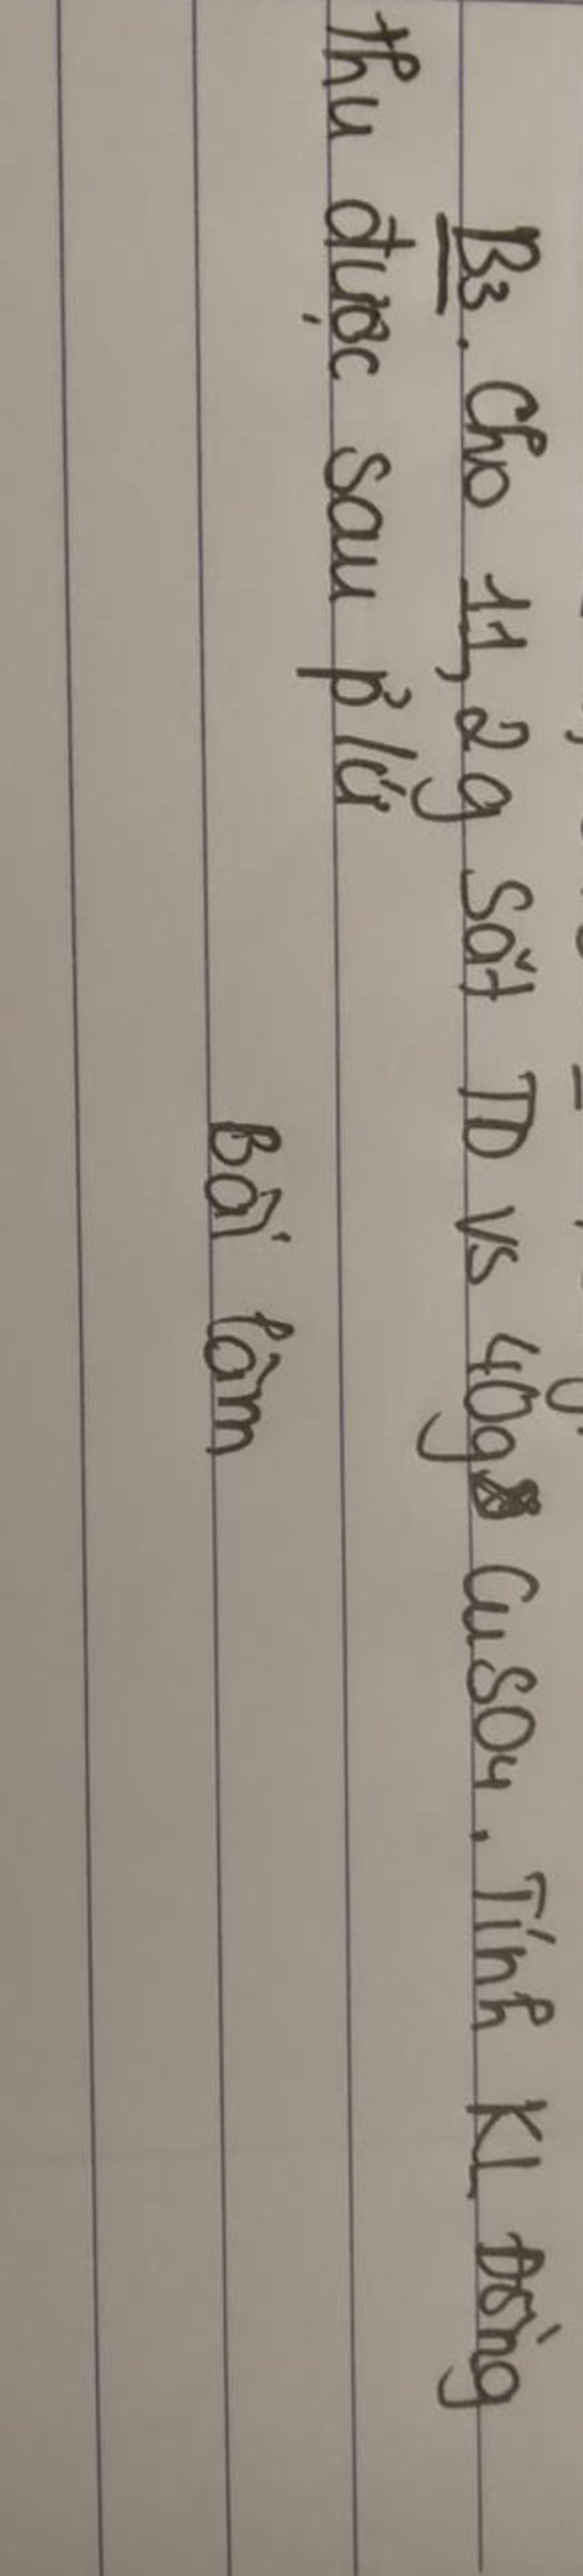 B3. Cho 11,2g Sắt TD vs 40g CuSO4. Tính KL Đồng
thu được sau p/ứ
Bài làm